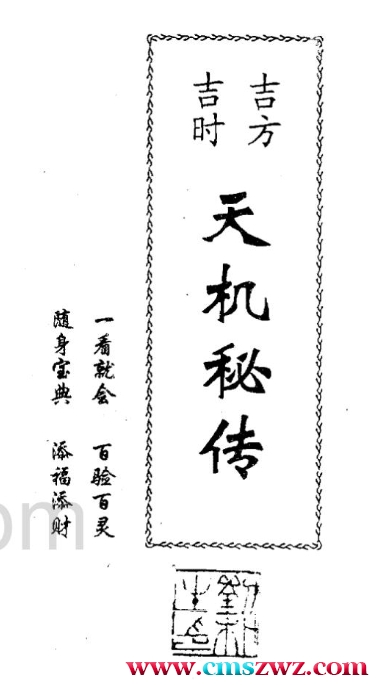 吉方
吉时
天机秘传
一看就会 百验百灵
随身宝典 添福添财
om
www.cmszwz.com